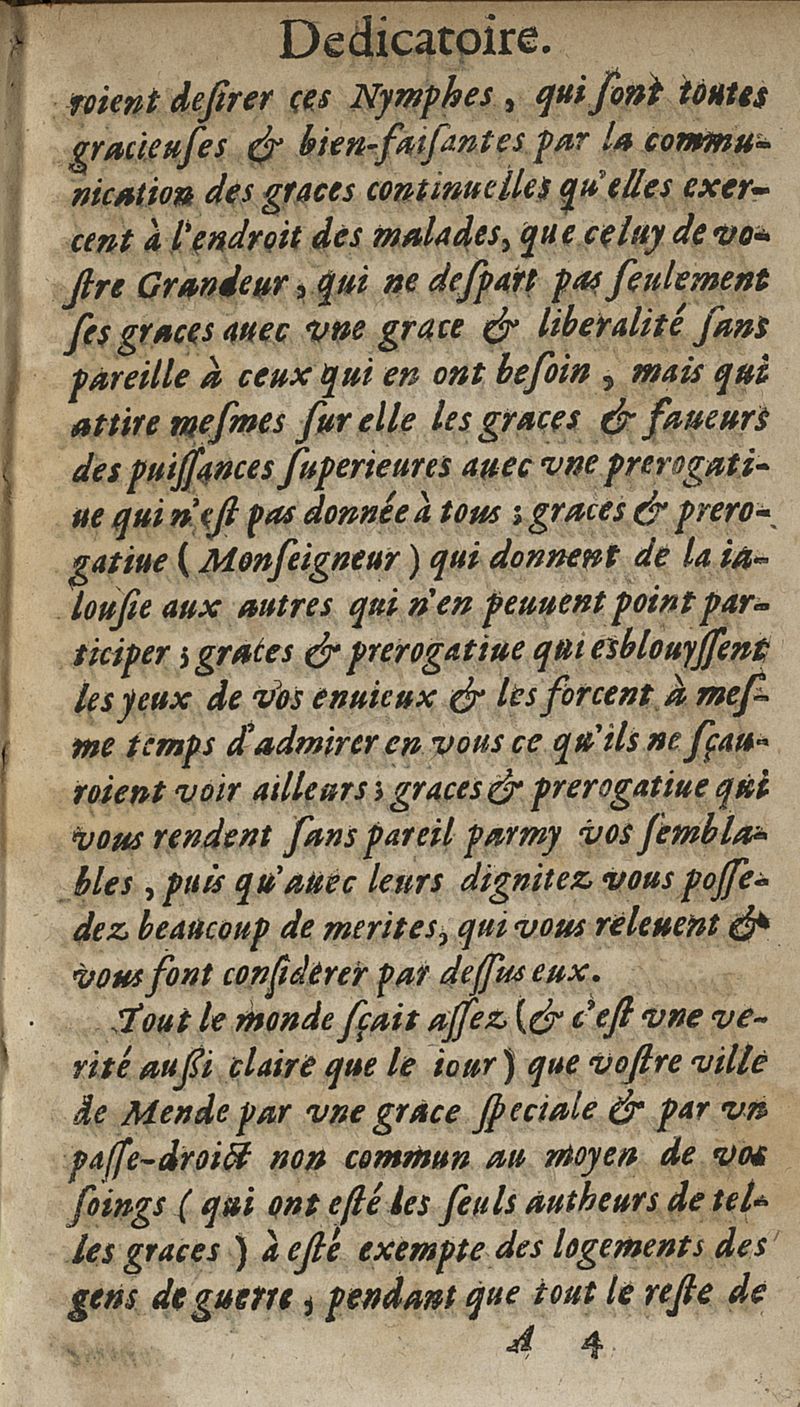 Dedicatoire.
roient deſirer ces Nymphes, qui ſont toutes
gracieuſes & bien-faiſantes par la commu-
nication des graces continuelles qu'elles exer-
cent à l'endroit des malades, que celuy de vo-
ſtre Grandeur, qui ne deſpart pas ſeulement
ſes graces auec vne grace & liberalité ſans
pareille à ceux qui en ont beſoin, mais qui
attire meſmes ſur elle les graces & faueurs
des puiſſances ſuperieures auec vne prerogati-
ue qui n'eſt pas donnée à tous; graces & prero-
gatiue (Monſeigneur) qui donnent de la ia-
louſie aux autres qui n'en peuuent point par-
ticiper; graces & prerogatiue qui esblouyſſent
les yeux de vos enuieux & les forcent à meſ-
me temps d'admirer en vous ce qu'ils ne ſçau-
roient voir ailleurs; graces & prerogatiue qui
vous rendent ſans pareil parmy vos ſembla-
bles, puis qu'auec leurs dignitez vous poſſe-
dez beaucoup de merites, qui vous releuent &
vous font conſiderer par deſſus eux.
Tout le monde ſçait aſſez (& c'eſt vne ve-
rité auſſi claire que le iour) que voſtre ville
de Mende par vne grace ſpeciale & par vn
paſſe-droict non commun au moyen de vos
ſoings (qui ont eſté les ſeuls autheurs de tel-
les graces) à eſté exempte des logements des
gens de guerre, pendant que tout le reſte de
A 4